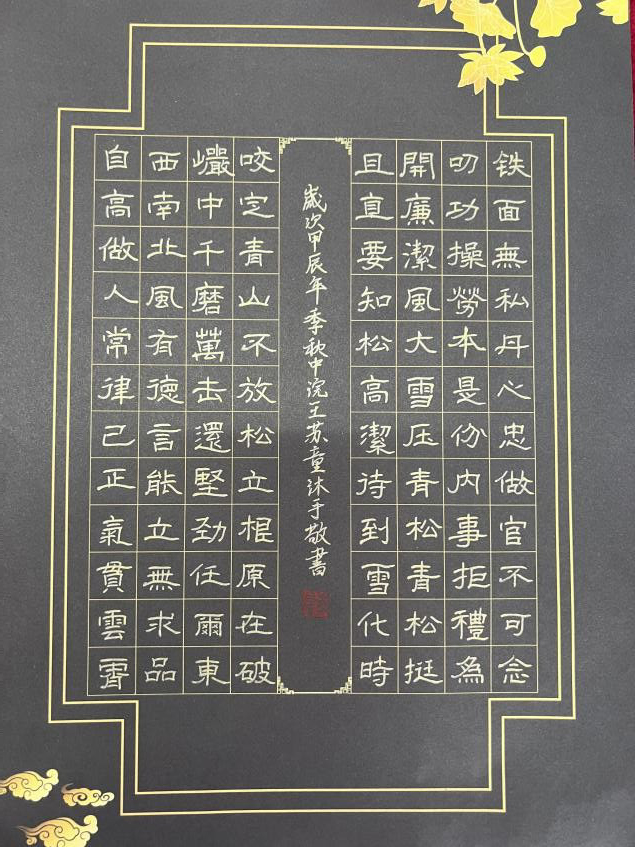 铁面無私丹心忠做官不可念
叨功操勞本是份内事拒禮為
開廉潔風大雪压青松青松挺
且直要知松高潔待到雪化時
歲次甲辰年季秋中浣王苏童沐手敬書
咬定青山不放松立根原在破
巗中千磨萬击還堅劲任爾東
西南北風有德言能立無求品
自高做人常律己正氣貫雲霄